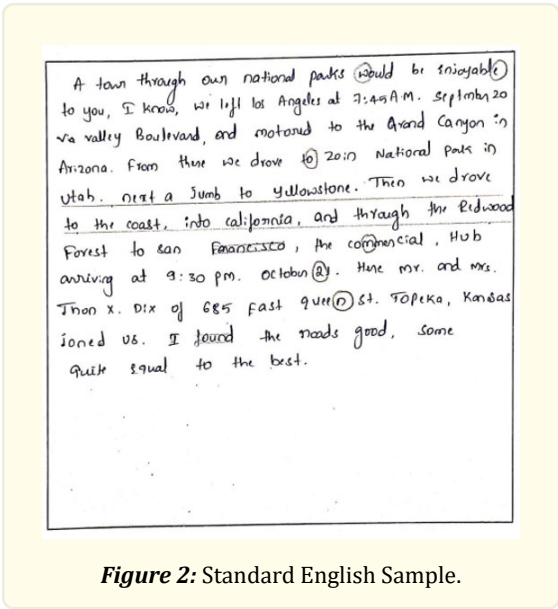 A tour through our national parks would be enjoyable
to you, I know, we left los Angeles at 7:45A.M. Septmber 20
via valley Boulevard, and motored to the Grand Canyon in
Arizona. From there we drove to zoin National Park in
Utah. next a Jumb to yellowstone. Then we drove
to the coast, into california, and through the Redwood
Forest to san Francisco, the commercial, Hub
arriving at 9:30 pm. october 21. Here mr. and mrs.
Jhon x. Dix of 685 East queen st. Topeka, Kansas
joned us. I found the roads good, some
quite equal to the best.
Figure 2: Standard English Sample.